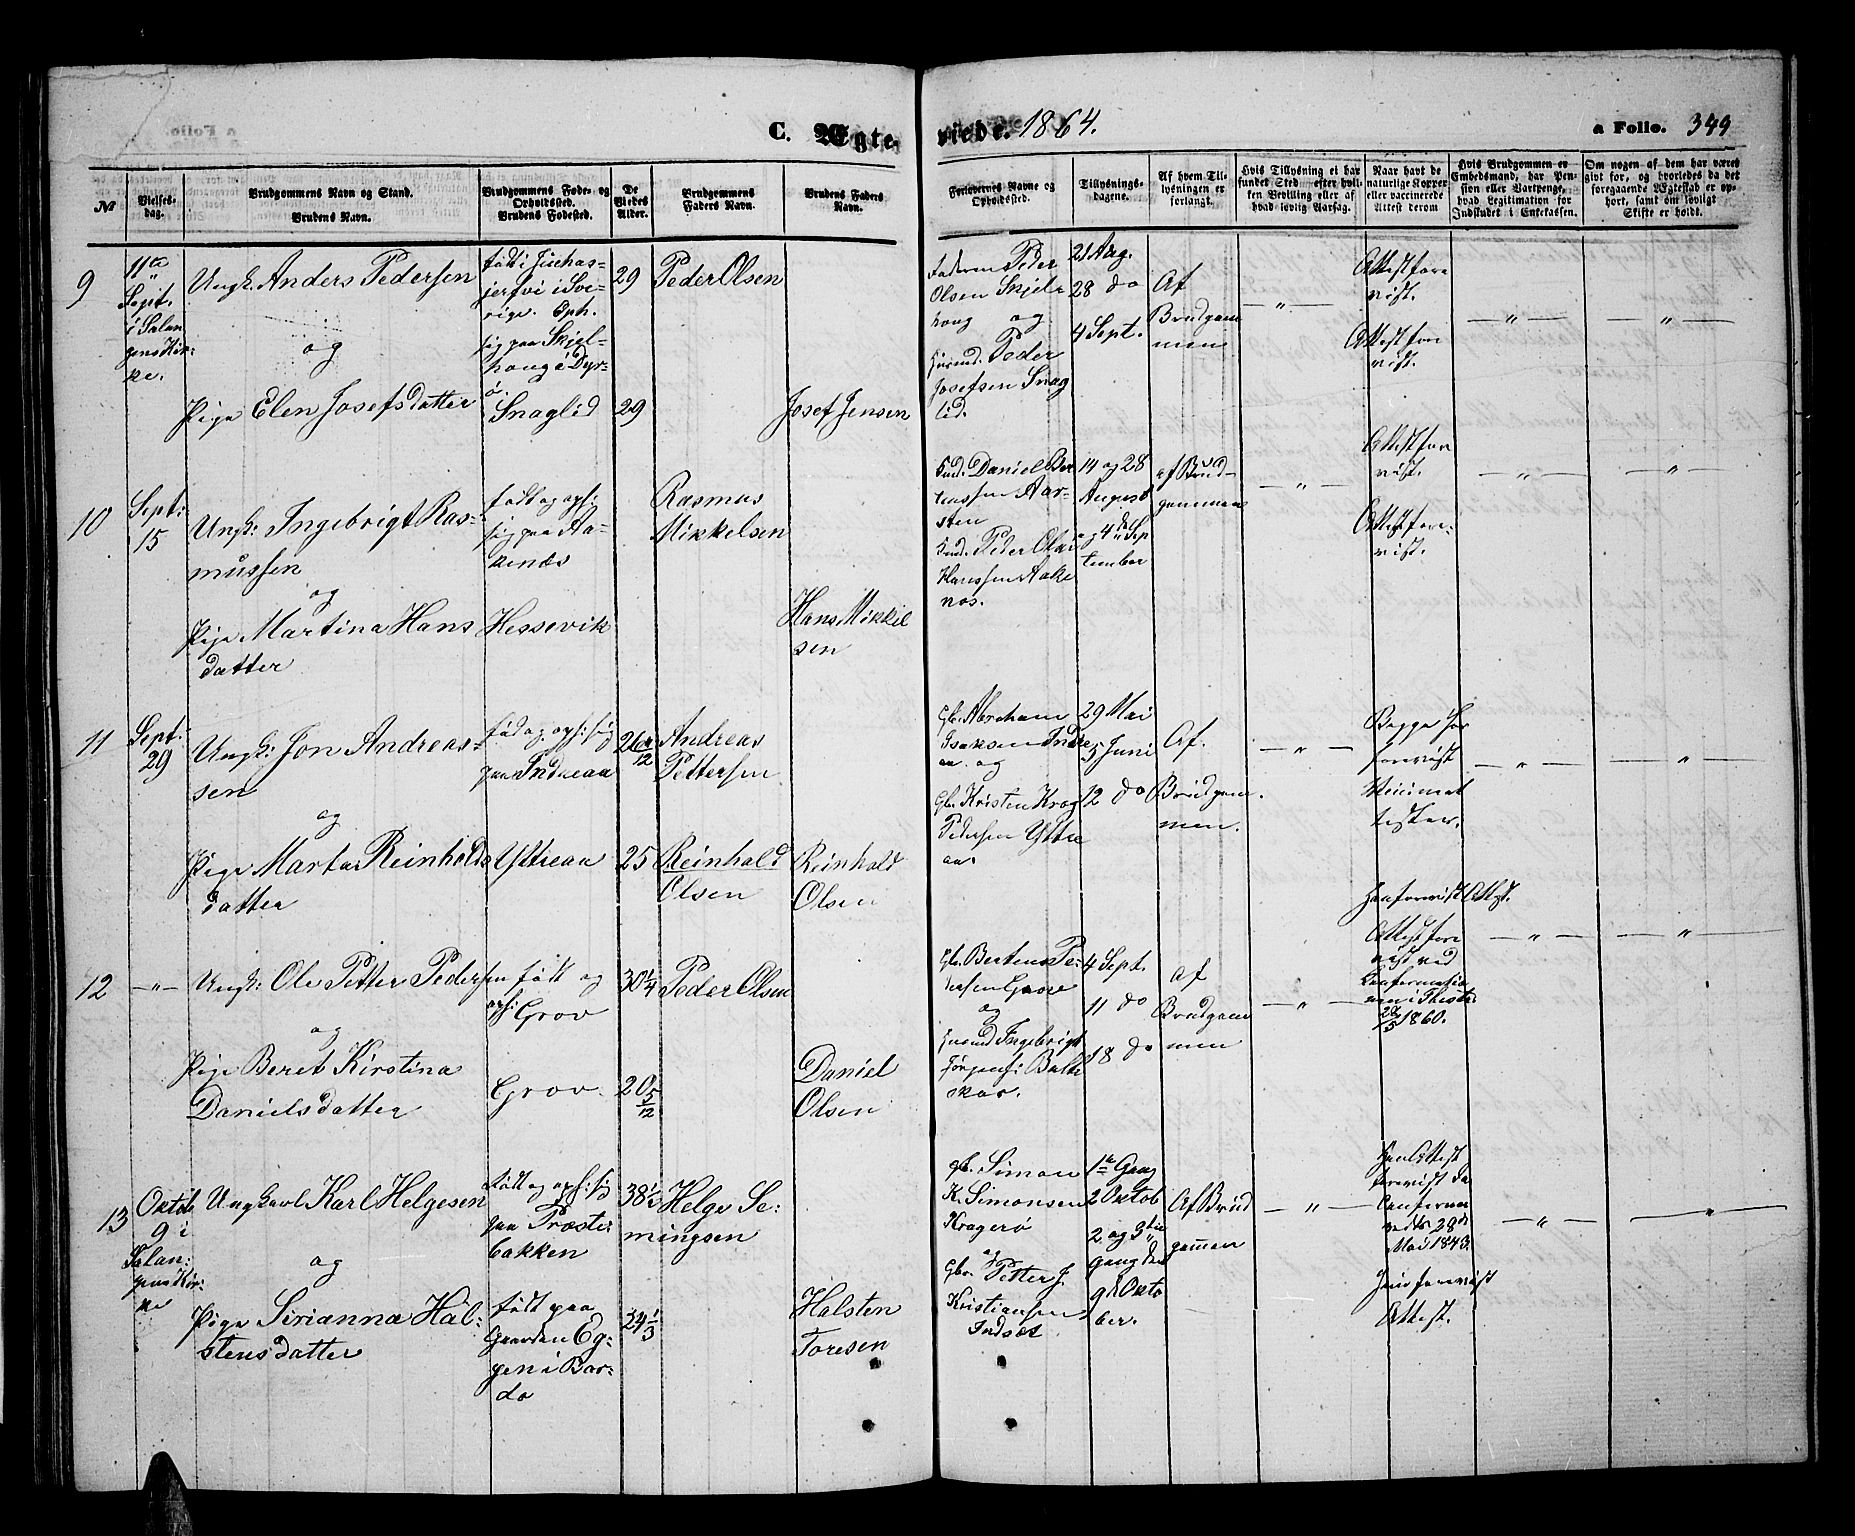 C. Ægteviede. 1864.
a Folio. 349
№
Vielses-
dag.
Brudgommens Navn og Stand.
Brudens Navn.
Brudgommens Føde- og
Opholdssted.
Brudens Fødested.
De
Viedes
Alder.
Brudgommens
Faders Navn.
Brudens Faders
Navn.
Forlovernes Navne og
Opholdssted.
Tillysnings-
dagene.
Af hvem Til-
lysningen er
forlangt.
Hvis Tillysning ei har
fundet Sted, efter hvil-
ken Bevilling eller af
hvad lovlig Aarsag.
Naar havt de
naturlige Kopper
eller vaccinerede
Attest derom
Hvis Brudgommen er
Embedsmand, har Pen-
sion eller Vartpenge,
hvad Legitimation for
Indskudet i Enkekassen.
Om nogen af dem har været
givt for, og hvorledes da det
foregaaende Ægteskab er op-
hørt, samt om lovligt
Skifte er holdt.
9
11te
Sept.
i Salan
gens Kir-
ke.
Ungk. Anders Pedersen
og
Pige Elen Josefsdatter
født i
jerfvi i Sve-
rige. Oph.
sig paa Skjel-
houg i Dyr-
ø.
Snaglid
29
29
Peder Olsen
Josef Jensen
Faderen Peder
Olsen Skjel-
houg og
Huusmd. Peder
Josefsen Snag
lid.
21 Aug.
28 do
4 Sept.
Af
Brudgom
men
— " —
Attest fore
vist.
Attest fore
vist.
— " —
— " —
10
Sept:
15
Ungk: Ingebrigt Ras-
mussen
og
Pige Martina Hans
datter
født og oph:
sig paa Aa-
kenæs
Hessevik
Rasmus
Mikkelsen
Hans Mikkel
sen
Daniel Ber
Aar-
sten
Peder Olai
Hanssen Aake
næs.
14 og 28
August
og 4de Sep
tember
af Brud-
gommen
— " —
Attest fore
vist.
Attest fore-
vist.
— " —
— " —
11
Sept:
29
Ungk: Jon Andreas-
sen
og
Pige Marta Reinholds
datter
fød og oph: sig
paa Indreaa
Ytreaa
26
25
Andreas
Pettersen
Reinhold
Olsen
Reinhold
Olsen
Gb. Abraham
Isaksen Indre
aa. og
Gb. Kristen Krog
Pedersen Yttre
aa.
29 Mai
5 Juni
12 do
Af.
Brudgom
men.
— " —
Begge har
forevist
Vaccinat
tester.
— " —
— " —
12
— " —
Ungk: Ole Petter Pedersen
og
Pige Beret Kirstina
Danielsdatter
født og
oph: Grov
Grov
30 1/4
20 5/12
Peder Olsen
Daniel
Olsen
Gb. Bertens Pe-
dersen Grov
og
Huusmd Ingebrigt
Jørgens: Balte
skar.
4 Sept.
11 do
18 do
af
Brudgom
men
— " —
Hun forevist Attest.
Attest fore
vist ved
Confermatio
nen i Thrste
28/5 1860.
— " —
— " —
13
Oktob
9 i
Salan:
gens Kir:
ke
Ungkarl Karl Helgesen
og
Pige Sirianna Hal-
stensdatter
født og oph: sig
paa Præste
bakken
født paa
Gaarden Eg-
gen i Bar-
do
38 1/3
24 1/3
Helge Se-
mingsen
Halsten
Toresen
Gb. Simon
K. Simonsen
Kragerø
og
Gb. Petter J.
Kristiansen
Indset
1te Gang
2 Oktob
2. og 3die
Gang den
9de Okto
ber.
Af Brud
gommen
— " —
Han Attest
forevist da
Conferme
redes 28de
Mai 1843.
Hun forevist
Attest.
— " —
— " —